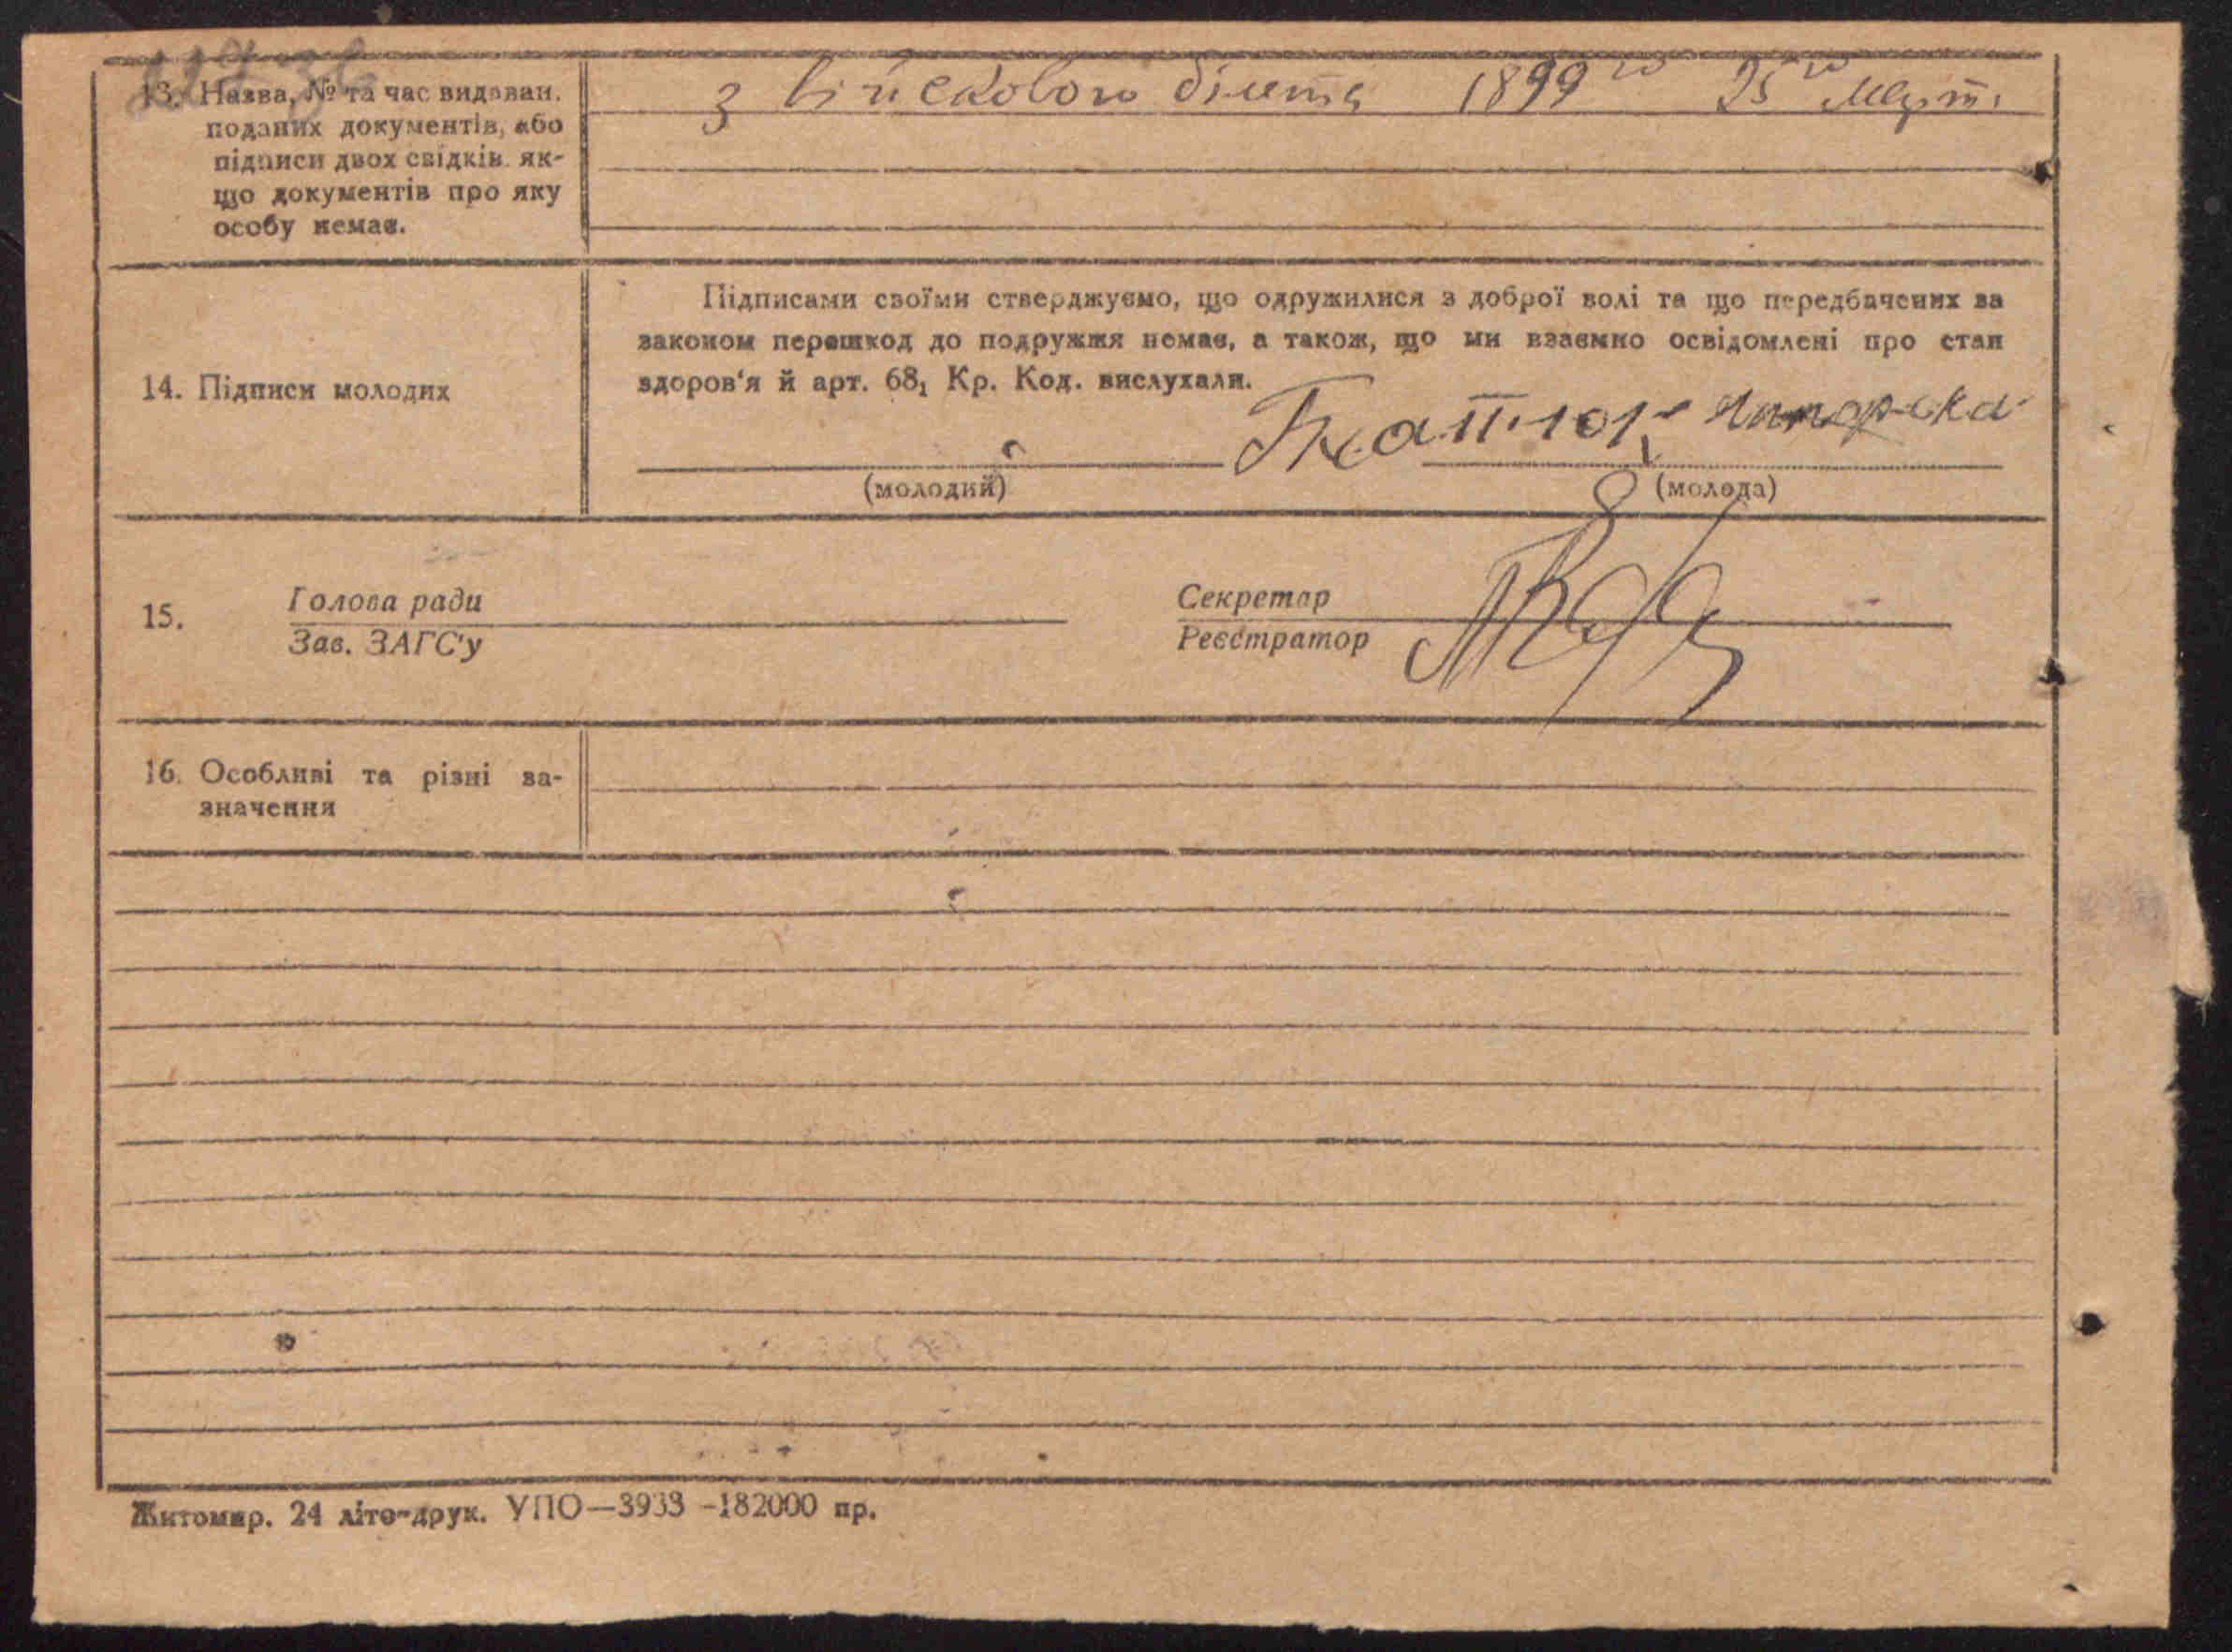 13. Назва, № та час видаван.
поданих документів, або
підписи двох свідків, як-
що документів про яку
особу немає.
з військового білета 1899 го 25 го Март.
14. Підписи молодих
Підписами своїми стверджуємо, що одружилися з доброї волі та що передбачених за
законом перешкод до подружжя немає, а також, що ми взаємно освідомлені про стан
здоров'я й арт. 68₁ Кр. Код. вислухали.
(молодий)
(молода)
15.
Голова ради
Зав. ЗАГС'у
Секретар
Реєстратор
16. Особливі та різні за-
значення
Житомир. 24 літо-друк. УПО—3933 -182000 пр.